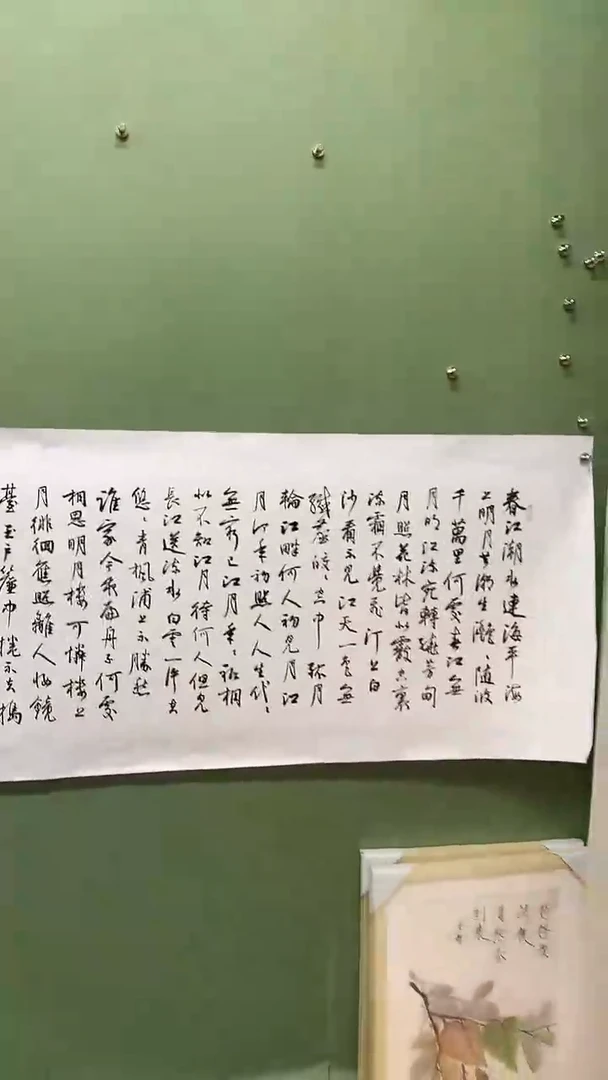 春江潮水連海平海
上明月共潮生灩〻隨波
千萬里何處春江無
月明江流宛轉繞芳甸
月照花林皆似霰空裏
流霜不覺飛汀上白
沙看不見江天一色無
纖塵皎〻空中孤月
輪江畔何人初見月江
月何年初照人人生代〻
無窮已江月年〻祗相
似不知江月待何人但見
長江送流水白雲一片去
悠〻青楓浦上不勝愁
誰家今夜扁舟子何處
相思明月樓可憐樓上
月徘徊應照離人妝鏡
臺玉戶簾中捲不去搗